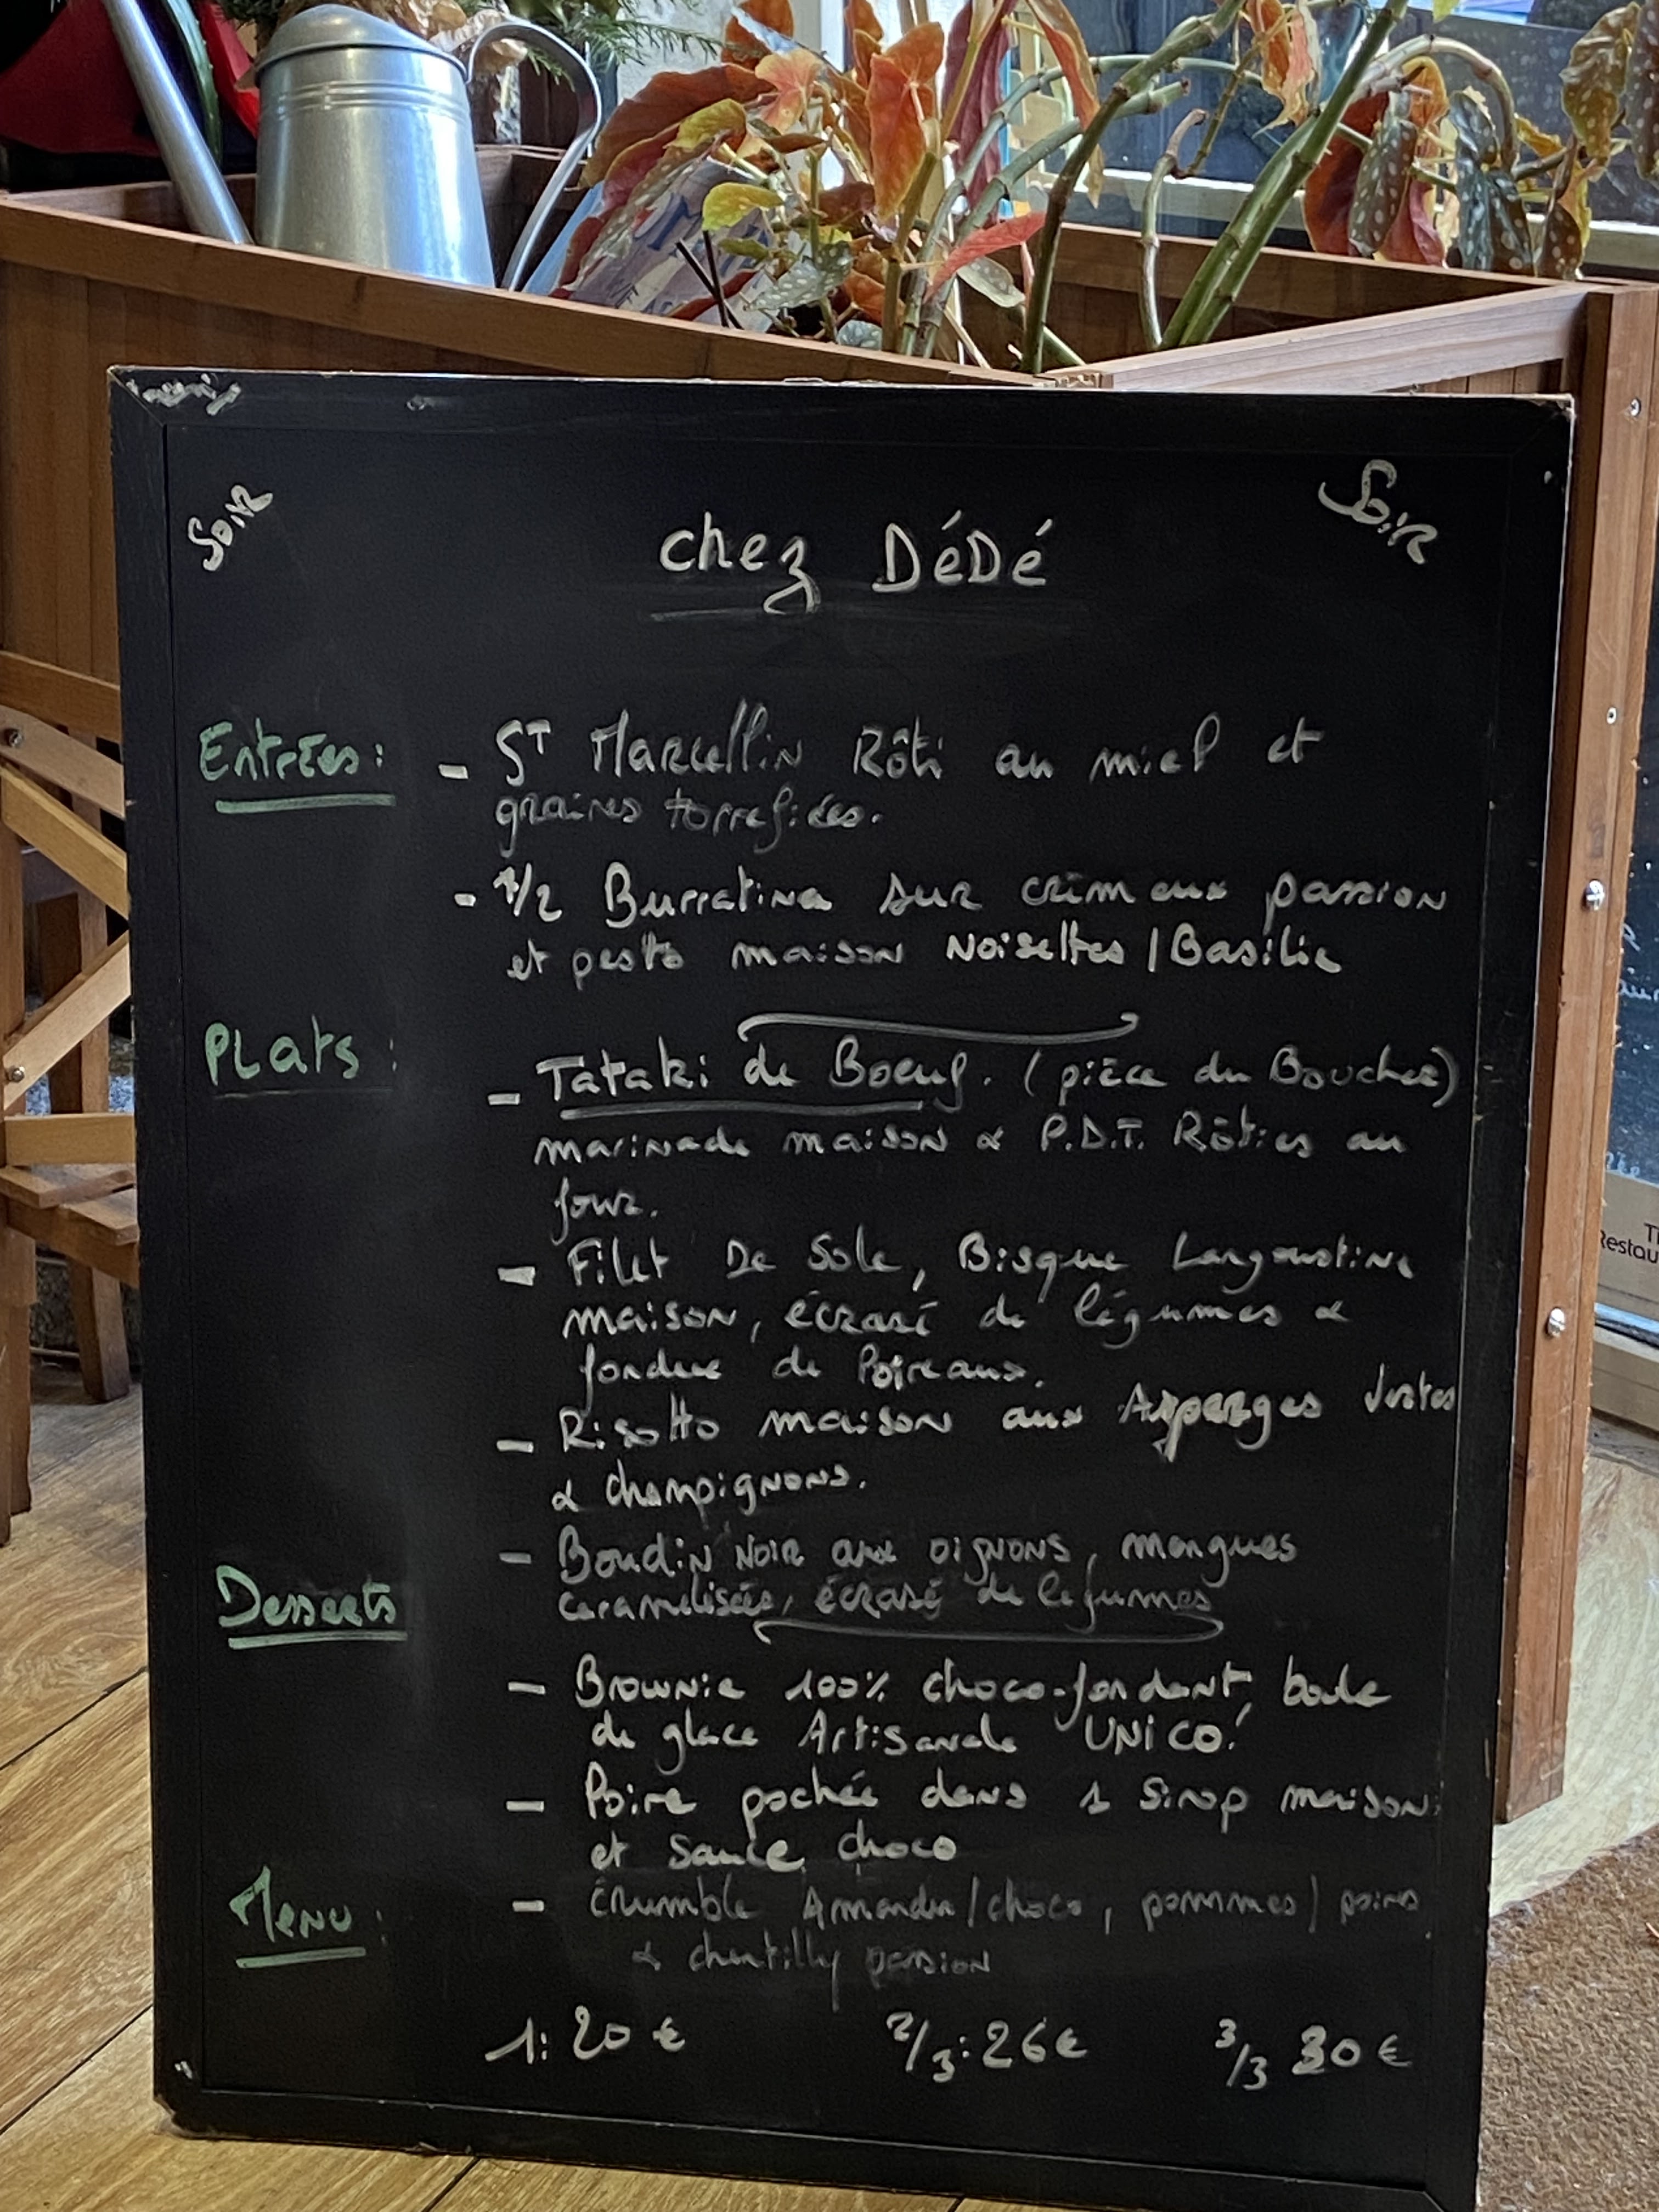 Soir
Soir
chez DéDé
Entrées :
- St Marcellin Rôti au miel et
graines torrefiées.
- 1/2 Burratina sur crémeux passion
et pesto maison Noisettes / Basilic
Plats :
- Tataki de Boeuf. (pièce du Boucher)
marinade maison & P.D.T. Rôties au
four.
- Filet De Sole, Bisque Langoustine
maison, écrasé de légumes &
fondue de Poireaux.
- Risotto maison aux Asperges Vertes
& champignons.
- Boudin Noir aux oignons, mangues
caramélisées, écrasé de légumes
Desserts
- Brownie 100% choco-fondant, boule
de glace Artisanale UNICO!
- Poire pochée dans 1 Sirop maison
et Sauce choco
- Crumble Amandes/choco, pommes/poires
& chantilly passion
Menu :
1: 20 € 2/3: 26 € 3/3 30 €